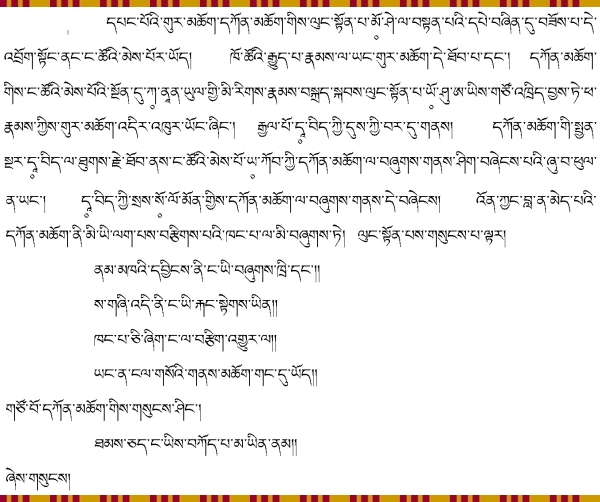 དཔང་པོའི་གུར་མཆོག་དཀོན་མཆོག་གིས་ལུང་སྟོན་པ་མོ་ཤེ་ལ་བསྟན་པའི་དཔེ་བཞིན་དུ་བཟོས་པ་དེ་
འབྲོག་སྟོང་ནང་ང་ཚོའི་མེས་པོར་ཡོད། ཁོ་ཚོའི་རྒྱུད་པ་རྣམས་ལ་ཡང་གུར་མཆོག་དེ་ཐོབ་པ་དང་། དཀོན་མཆོག་
གིས་ང་ཚོའི་མེས་པོའི་སྔོན་དུ་ཀཱ་ནཱན་ཡུལ་གྱི་མི་རིགས་རྣམས་བསྐྲད་སྐབས་ལུང་སྟོན་པ་ཡོ་ཤུ་ཨ་ཡིས་གཙོ་འཁྲིད་བྱས་ཏེ་ཕ་
རྣམས་ཀྱིས་གུར་མཆོག་འདིར་འཁུར་ཡོང་ཞིང་། རྒྱལ་པོ་དཱ་བིད་ཀྱི་དུས་ཀྱི་བར་དུ་གནས། དཀོན་མཆོག་གི་སྤྱན་
སྔར་དཱ་བིད་ལ་ཐུགས་རྗེ་ཐོབ་ནས་ང་ཚོའི་མེས་པོ་ཡ་ཀོབ་ཀྱི་དཀོན་མཆོག་ལ་བཞུགས་གནས་ཤིག་བཞེངས་པའི་ཞུ་བ་ཕུལ་
ན་ཡང་། དཱ་བིད་ཀྱི་སྲས་སོ་ལོ་མོན་གྱིས་དཀོན་མཆོག་ལ་བཞུགས་གནས་དེ་བཞེངས། འོན་ཀྱང་བླ་ན་མེད་པའི་
དཀོན་མཆོག་ནི་མི་ཡི་ལག་པས་བརྩིགས་པའི་ཁང་པ་ལ་མི་བཞུགས་ཏེ། ལུང་སྟོན་པས་གསུངས་པ་ལྟར།
ནམ་མཁའི་དབྱིངས་ནི་ང་ཡི་བཞུགས་ཁྲི་དང་།།
ས་གཞི་འདི་ནི་ང་ཡི་རྐང་སྟེགས་ཡིན།།
ཁང་པ་ཅི་ཞིག་ང་ལ་བརྩིག་འགྱུར་ལ།།
ཡང་ན་ངལ་གསོའི་གནས་མཆོག་གང་དུ་ཡོད།།
གཙོ་བོ་དཀོན་མཆོག་གིས་གསུངས་ཤིང་།
ཐམས་ཅད་ང་ཡིས་བཀོད་པ་མ་ཡིན་ནམ།།
ཞེས་གསུངས།